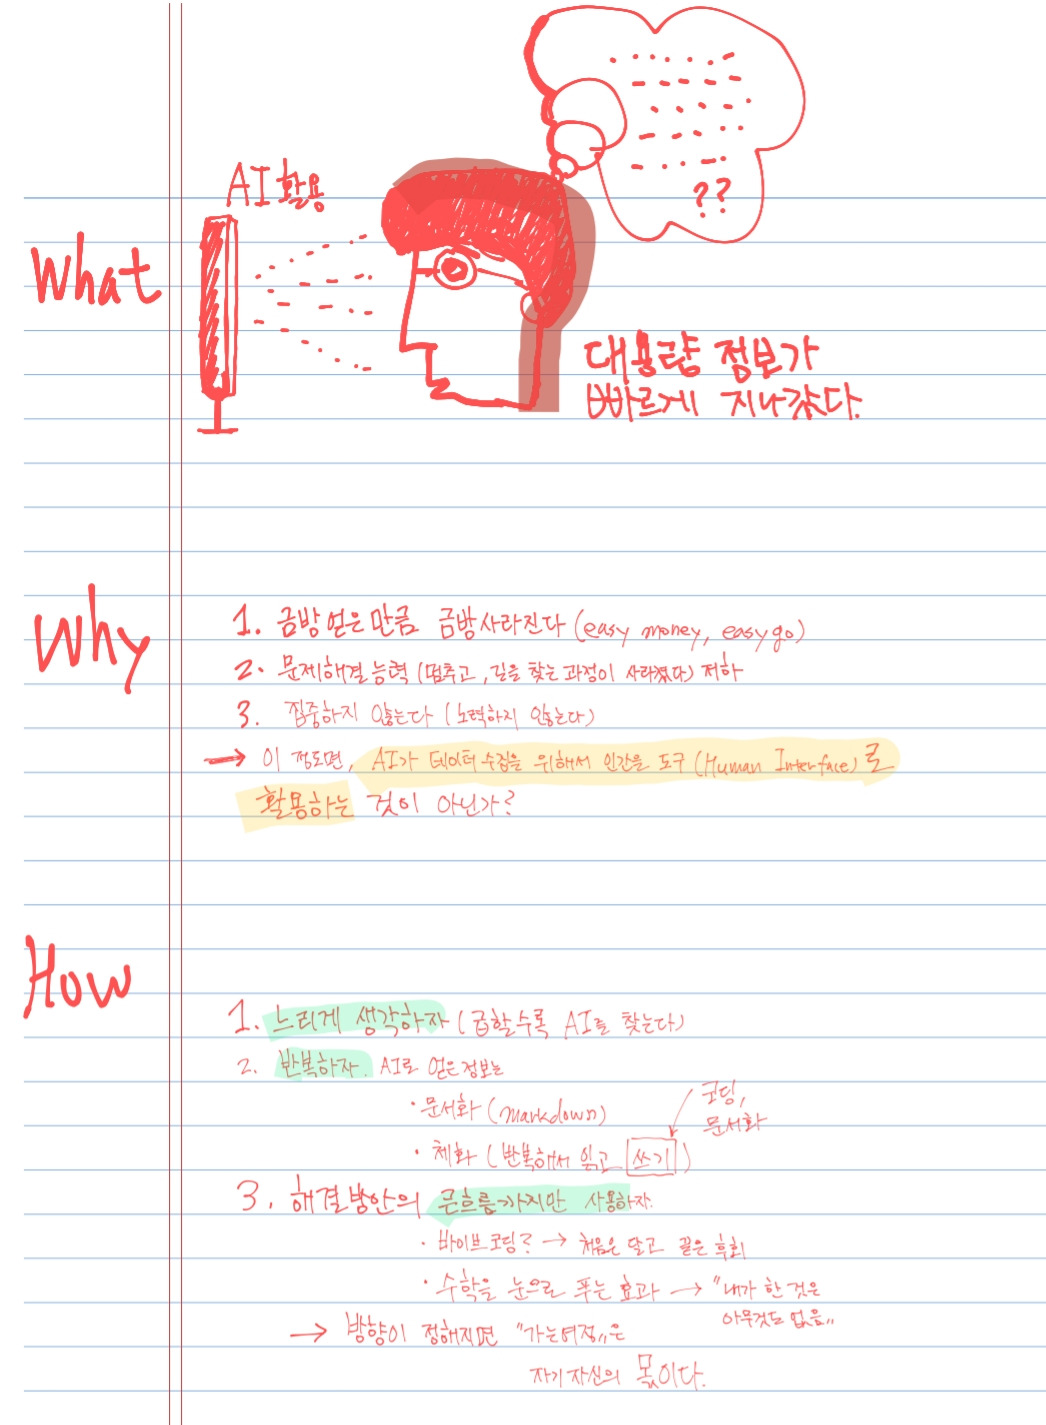 ??
AI 활용
What
대용량 정보가
빠르게 지나갔다.
Why
1. 금방 얻은 만큼 금방 사라진다 (easy money, easy go)
2. 문제해결 능력 (멈추고, 길을 찾는 과정이 사라졌다) 저하
3. 집중하지 않는다 (노력하지 않는다)
→ 이 정도면, AI가 데이터 수집을 위해서 인간을 도구 (Human Interface) 로
활용하는 것이 아닌가?
How
1. 느리게 생각하자 (급할수록 AI를 찾는다)
2. 반복하자. AI로 얻은 정보는
· 문서화 (markdown)
코딩,
문서화
· 체화 (반복해서 읽고 쓰기)
3. 해결방안의 큰흐름까지만 사용하자.
· 바이브코딩? → 처음은 달고 끝은 후회
· 수학을 눈으로 푸는 효과 → "내가 한 것은
아무것도 없음"
→ 방향이 정해지면 "가는여정"은
자기 자신의 몫이다.